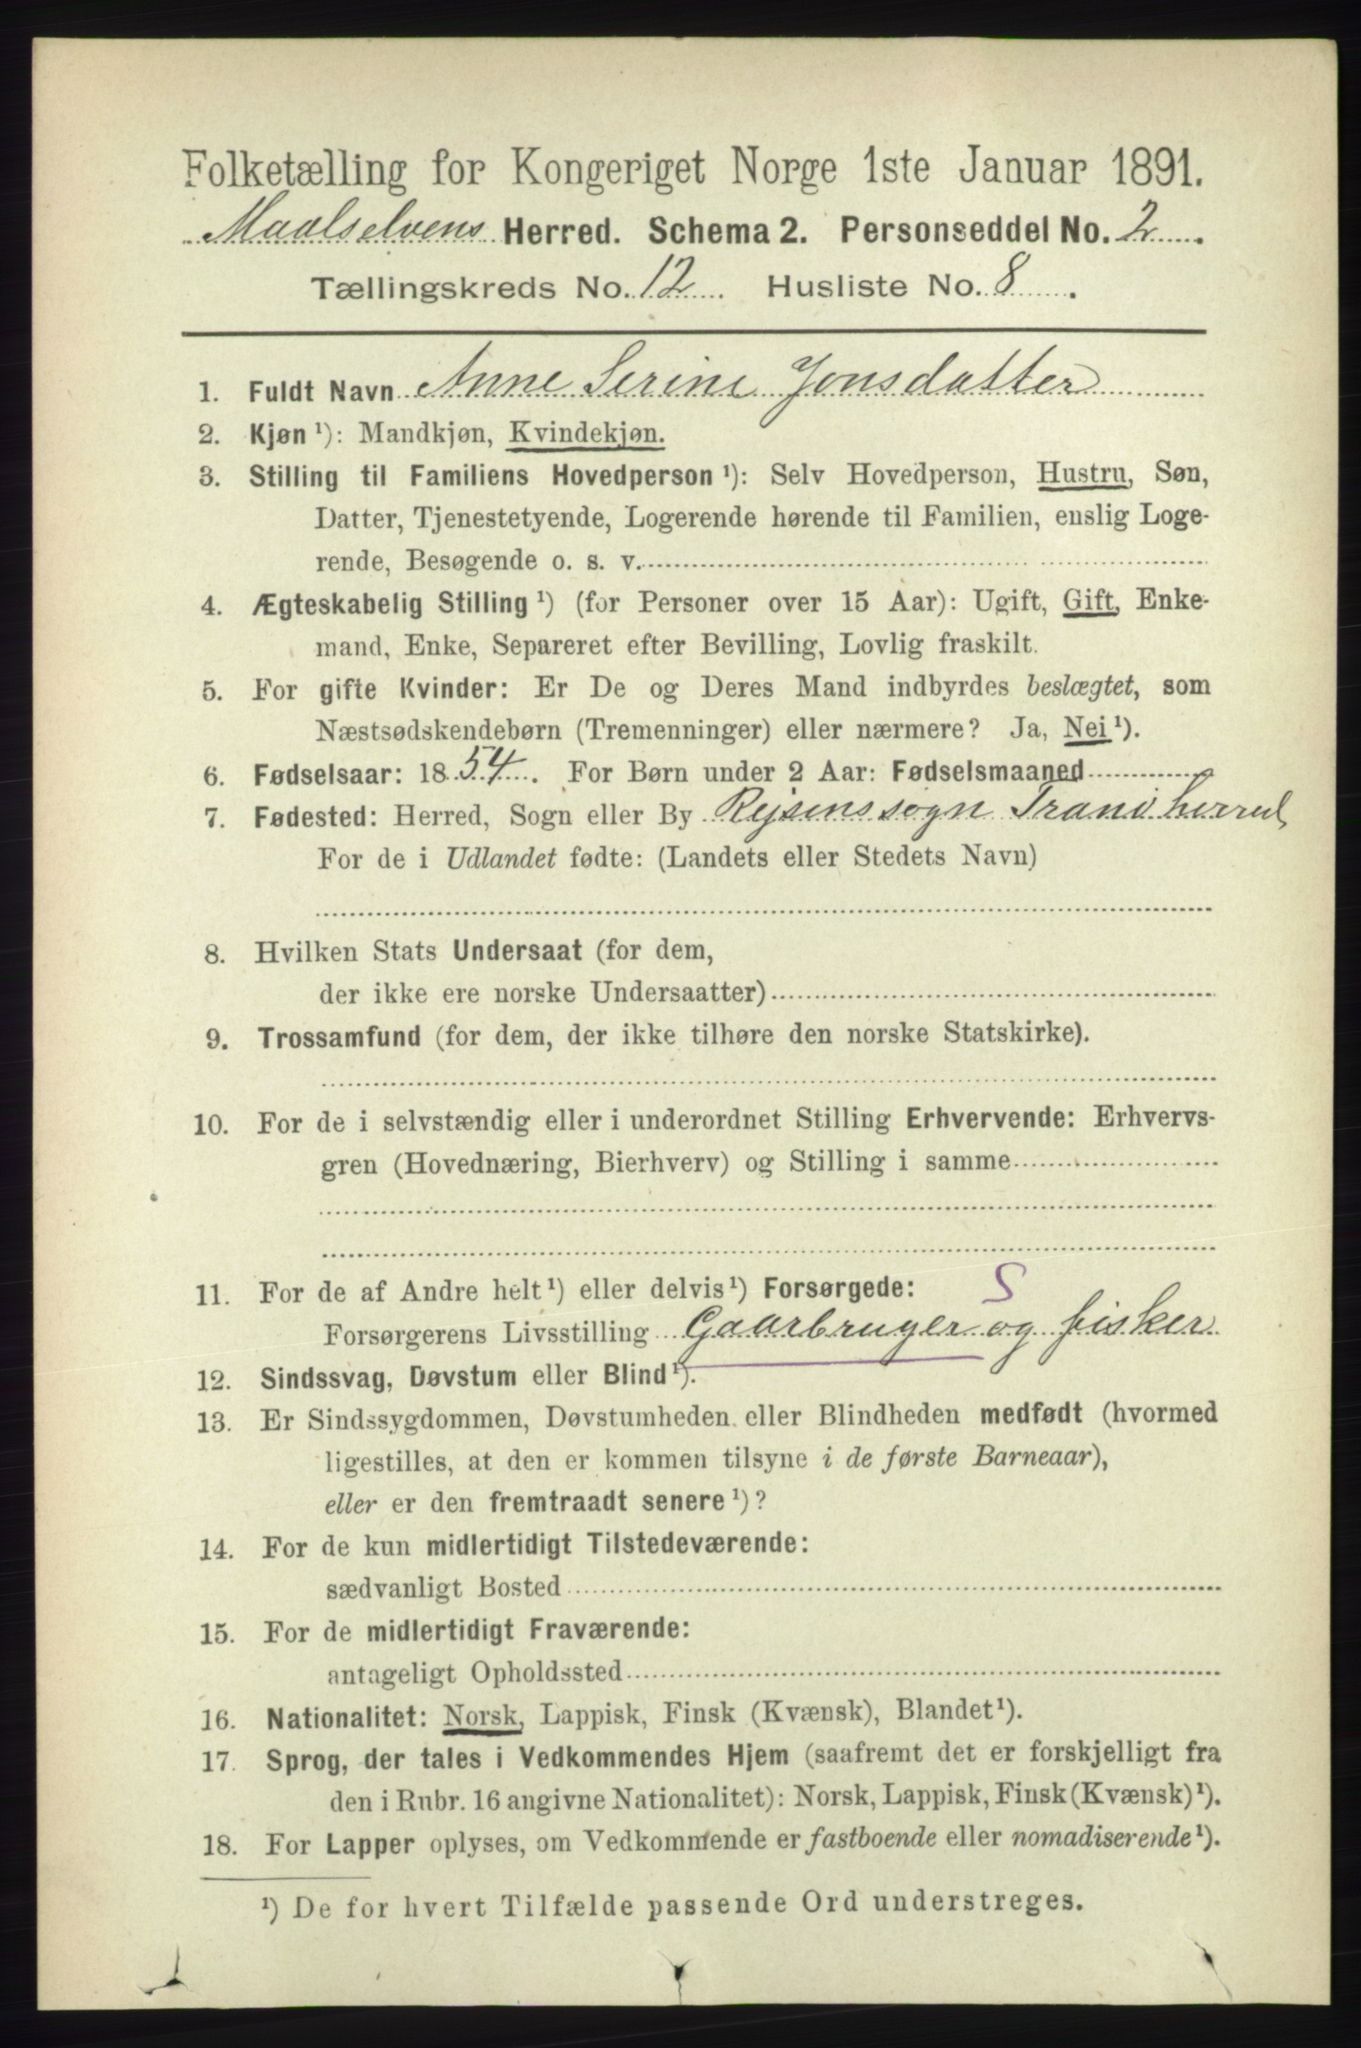 Folketælling for Kongeriget Norge 1ste Januar 1891.
Maalselvens Herred. Schema 2. Personseddel No. 2
Tællingskreds No. 12 Husliste No. 8
1. Fuldt Navn Anne Serine Jonsdatter
2. Kjøn ¹): Mandkjøn, Kvindekjøn.
3. Stilling til Familiens Hovedperson ¹): Selv Hovedperson, Hustru, Søn,
Datter, Tjenestetyende, Logerende hørende til Familien, enslig Loge-
rende, Besøgende o. s. v.
4. Ægteskabelig Stilling ¹) (for Personer over 15 Aar): Ugift, Gift, Enke-
mand, Enke, Separeret efter Bevilling, Lovlig fraskilt.
5. For gifte Kvinder: Er De og Deres Mand indbyrdes beslægtet, som
Næstsødskendebørn (Tremenninger) eller nærmere? Ja, Nei ¹).
6. Fødselsaar: 1854. For Børn under 2 Aar: Fødselsmaaned
7. Fødested: Herred, Sogn eller By Rejsens sogn Tranø herred
For de i Udlandet fødte: (Landets eller Stedets Navn)
8. Hvilken Stats Undersaat (for dem,
der ikke ere norske Undersaatter)
9. Trossamfund (for dem, der ikke tilhøre den norske Statskirke).
10. For de i selvstændig eller i underordnet Stilling Erhvervende: Erhvervs-
gren (Hovednæring, Bierhverv) og Stilling i samme
11. For de af Andre helt ¹) eller delvis ¹) Forsørgede: S
Forsørgerens Livsstilling Gaarbruger og fisker
12. Sindssvag, Døvstum eller Blind ¹).
13. Er Sindssygdommen, Døvstumheden eller Blindheden medfødt (hvormed
ligestilles, at den er kommen tilsyne i de første Barneaar),
eller er den fremtraadt senere ¹)?
14. For de kun midlertidigt Tilstedeværende:
sædvanligt Bosted
15. For de midlertidigt Fraværende:
antageligt Opholdssted
16. Nationalitet: Norsk, Lappisk, Finsk (Kvænsk), Blandet ¹).
17. Sprog, der tales i Vedkommendes Hjem (saafremt det er forskjelligt fra
den i Rubr. 16 angivne Nationalitet): Norsk, Lappisk, Finsk (Kvænsk) ¹).
18. For Lapper oplyses, om Vedkommende er fastboende eller nomadiserende ¹).
¹) De for hvert Tilfælde passende Ord understreges.